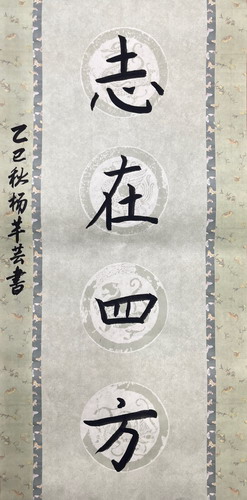 志在四方
乙巳秋杨芊芸書